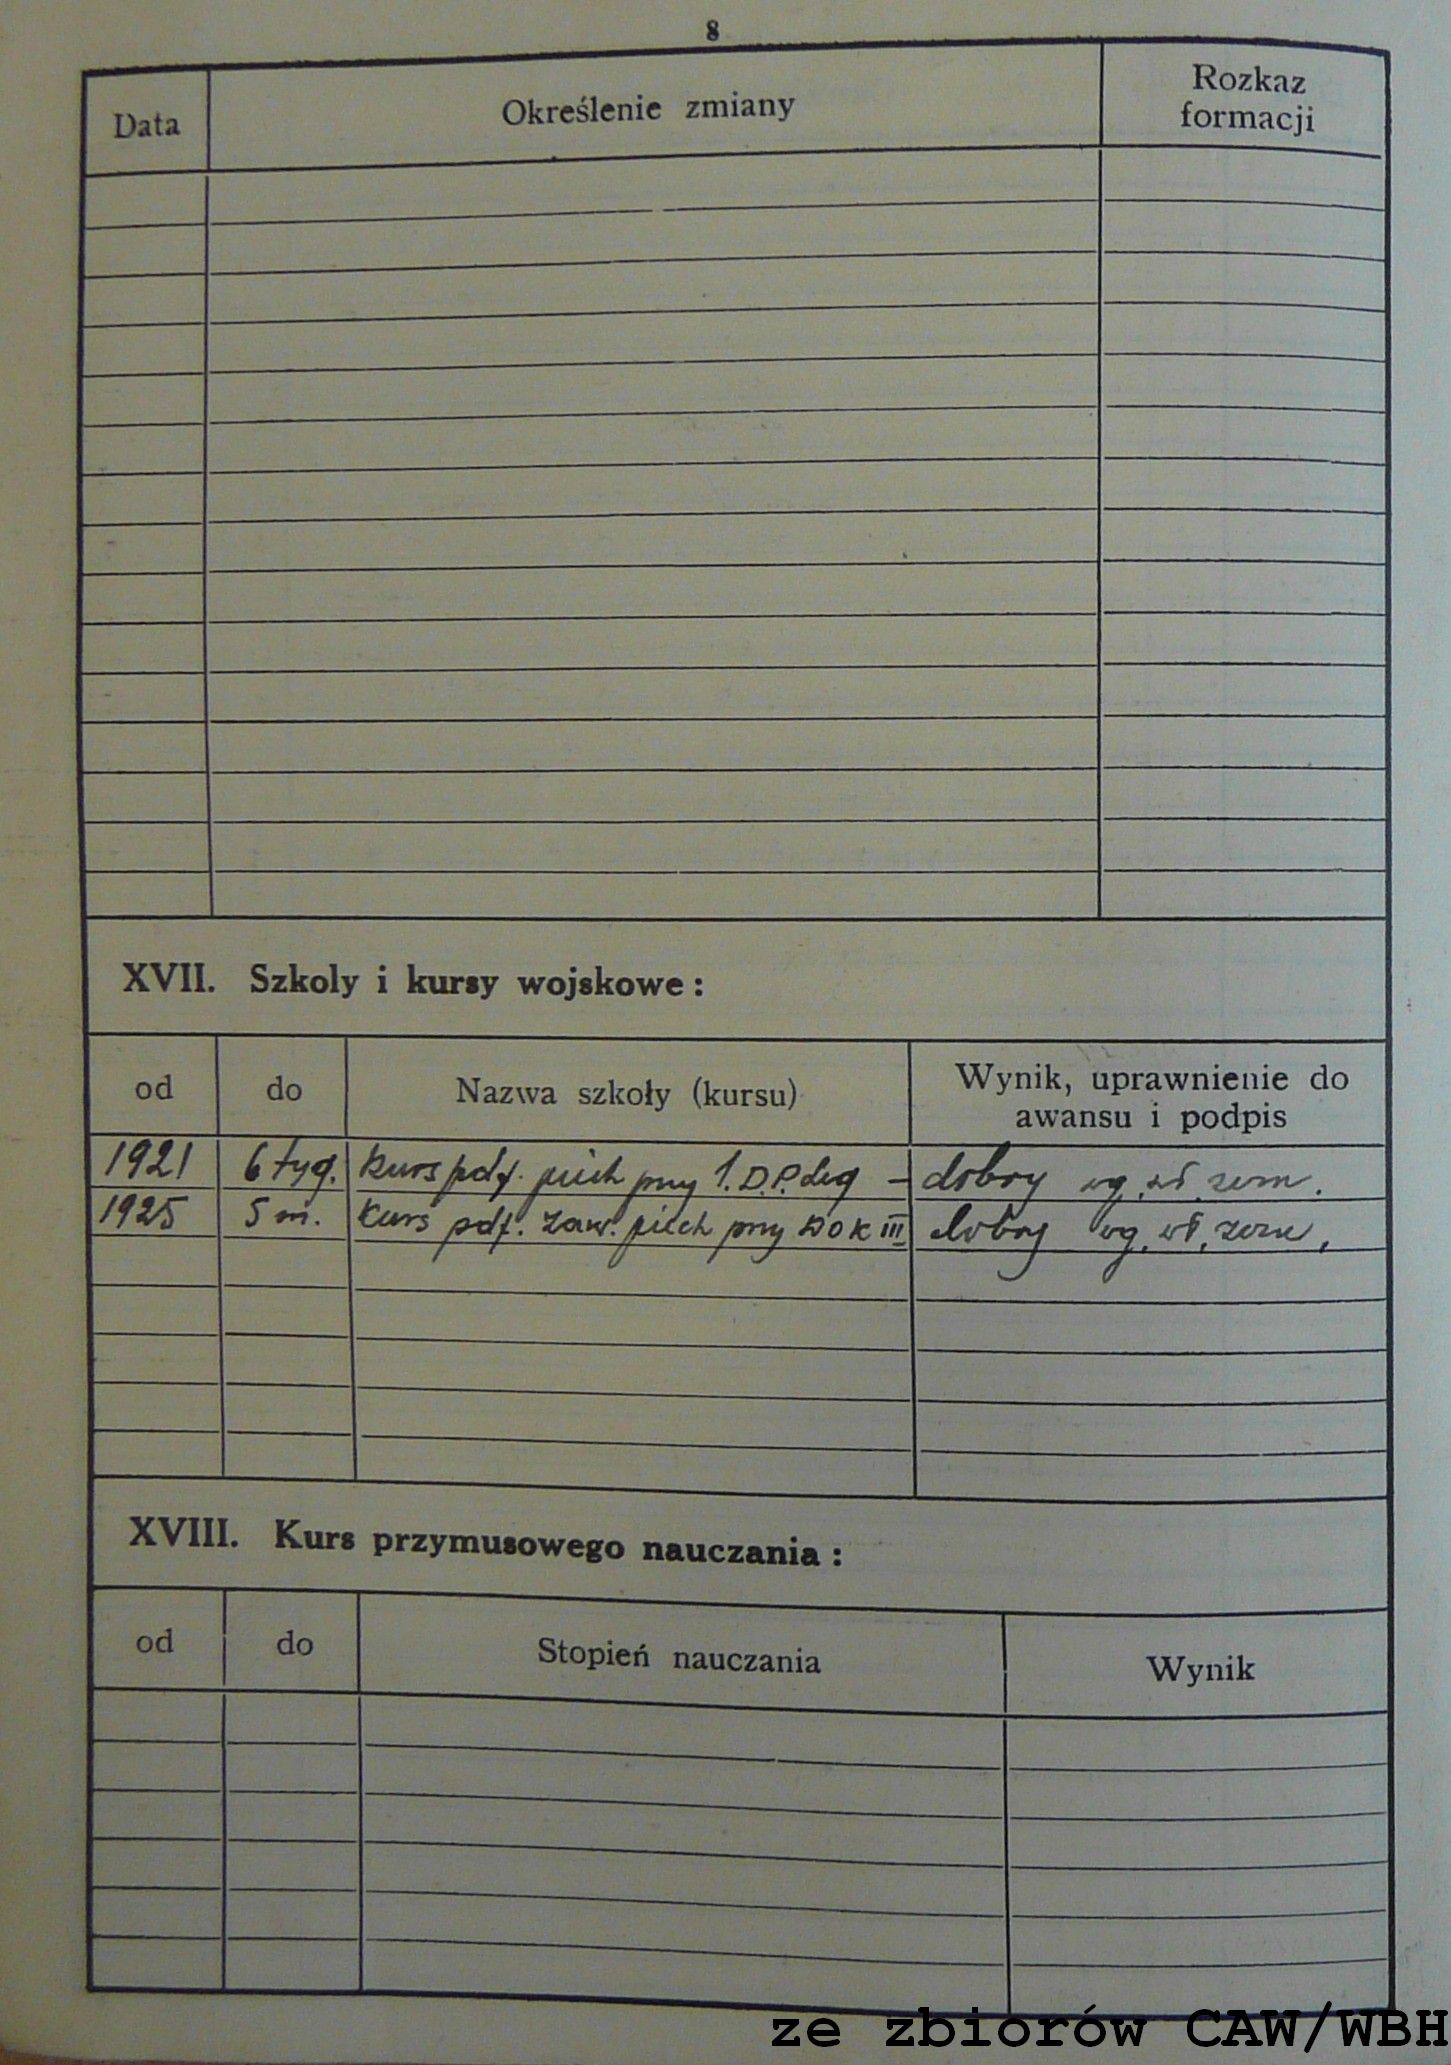 8
Data Określenie zmiany Rozkaz formacji
XVII. Szkoly i kursy wojskowe:
od do Nazwa szkoły (kursu) Wynik, uprawnienie do awansu i podpis
1921 6 tyg. Kurs pdf. piech przy 1.D.P.Leg - dobry wg. wł. zezn.
1925 5 m. Kurs pdf. zaw. piech przy DOK III dobry wg. wł. zezn.
XVIII. Kurs przymusowego nauczania:
od do Stopień nauczania Wynik
ze zbiorów CAW/WBH